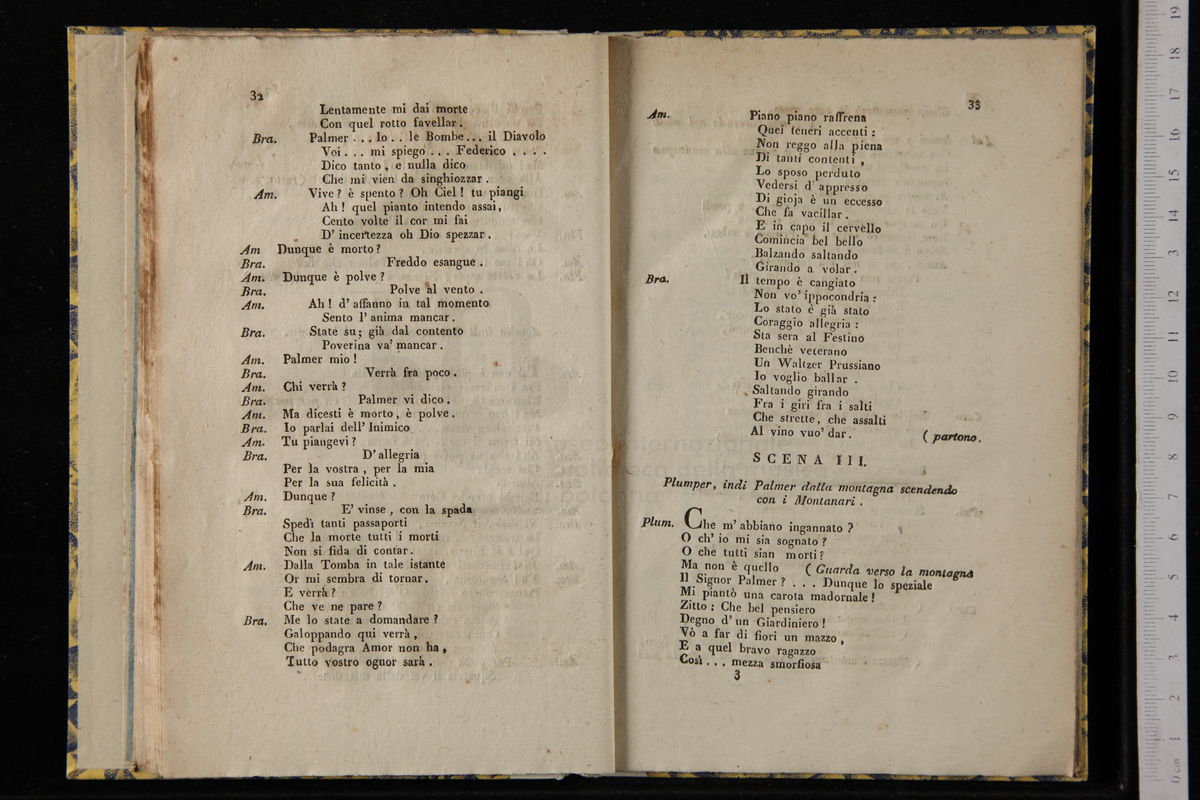 32
Lentamente mi dai morte
Con quel rotto favellar.
Bra. Palmer . . . Io . . le Bombe... il Diavolo
Voi. . . mi spiego . . . Federico . . . .
Dico tanto, e nulla dico
Che mi vien da singhiozzar.
Am. Vive? è spento? Oh Ciel! tu piangi
Ah! quel pianto intendo assai,
Cento volte il cor mi fai
D' incertezza oh Dio spezzar.
Am Dunque è morto?
Bra. Freddo esangue.
Am. Dunque è polve?
Bra. Polve al vento.
Am. Ah! d' affanno in tal momento
Sento l' anima mancar.
Bra. State su; già dal contento
Poverina va' mancar.
Am. Palmer mio!
Bra. Verrà fra poco.
Am. Chi verrà?
Bra. Palmer vi dico.
Am. Ma dicesti è morto, è polve.
Bra. Io parlai dell' Inimico
Am. Tu piangevi?
Bra. D' allegria
Per la vostra, per la mia
Per la sua felicità.
Am. Dunque?
Bra. E' vinse, con la spada
Spedì tanti passaporti
Che la morte tutti i morti
Non si fida di contar.
Am. Dalla Tomba in tale istante
Or mi sembra di tornar.
E verrà?
Che ve ne pare?
Bra. Me lo state a domandare?
Galoppando qui verrà,
Che podagra Amor non ha,
Tutto vostro ognor sarà.
33
Am. Piano piano raffrena
Quei teneri accenti:
Non reggo alla piena
Di tanti contenti,
Lo sposo perduto
Vedersi d' appresso
Di gioja è un eccesso
Che fa vacillar.
E in capo il cervello
Comincia bel bello
Balzando saltando
Girando a volar.
Bra. Il tempo è cangiato
Non vo' ippocondria:
Lo stato è già stato
Coraggio allegria:
Sta sera al Festino
Benchè veterano
Un Waltzer Prussiano
Io voglio ballar.
Saltando girando
Fra i giri fra i salti
Che strette, che assalti
Al vino vuo' dar. ( partono.
SCENA III.
Plumper, indi Palmer dalla montagna scendendo
con i Montanari.
Plum. Che m' abbiano ingannato?
O ch' io mi sia sognato?
O che tutti sian morti?
Ma non è quello ( Guarda verso la montagna
Il Signor Palmer? . . . Dunque lo speziale
Mi piantò una carota madornale!
Zitto: Che bel pensiero
Degno d' un Giardiniero!
Vò a far di fiori un mazzo,
E a quel bravo ragazzo
Così . . . mezza smorfiosa
3